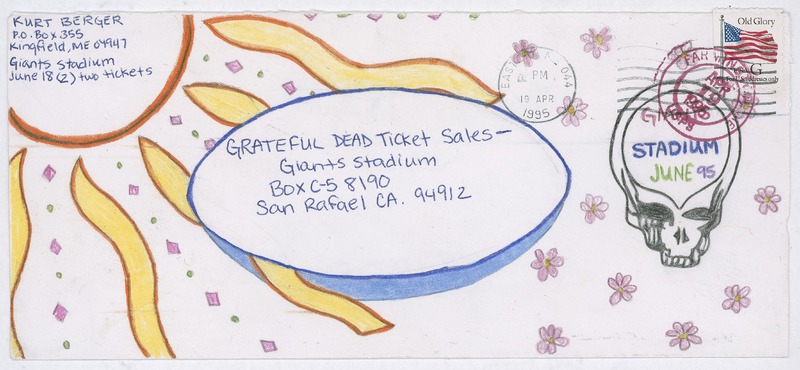 KURT BERGER
P.O. Box 355
Kingfield, ME 04947
Giants Stadium
June 18 (2) two tickets
GRATEFUL DEAD Ticket Sales—
Giants Stadium
Box C-5 8190
San Rafael CA. 94912
PM
19 APR
1995
Old Glory
G
STADIUM
JUNE 95